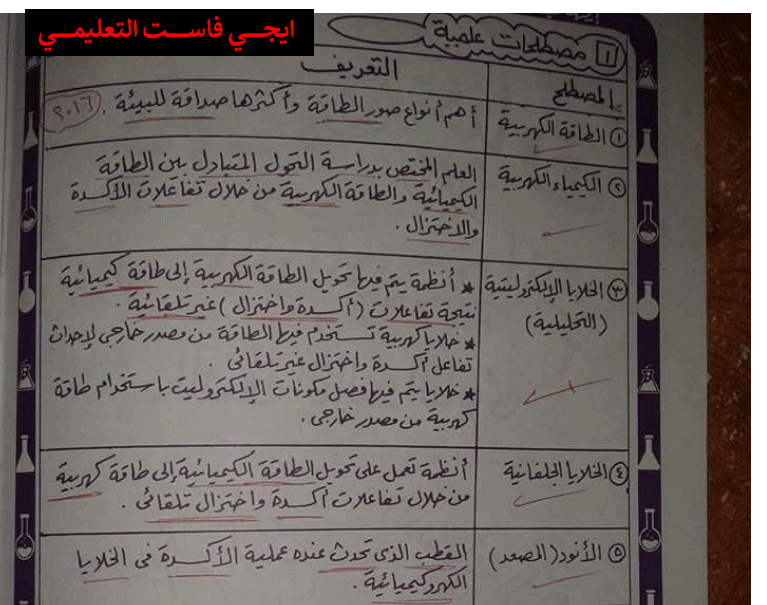 ايجي فاست التعليمي
١ مصطلحات علمية
المصطلح
التعريف
① الطاقة الكهربية
أهم أنواع صور الطاقة وأكثرها صداقة للبيئة . ٢٠١٦
② الكيمياء الكهربية
العلم المختص بدراسة التحول المتبادل بين الطاقة
الكيميائية والطاقة الكهربية من خلال تفاعلات الأكسدة
والاختزال .
③ الخلايا الإلكتروليتية
(التحليلية)
* أنظمة يتم فيها تحويل الطاقة الكهربية إلى طاقة كيميائية
نتيجة تفاعلات (أكسدة واختزال) غير تلقائية .
* خلايا كهربية تستخدم فيها الطاقة من مصدر خارجي لإحداث
تفاعل أكسدة واختزال غير تلقائى .
* خلايا يتم فيها فصل مكونات الإلكتروليت باستخدام طاقة
كهربية من مصدر خارجى .
④ الخلايا الجلفانية
أنظمة تعمل على تحويل الطاقة الكيميائية إلى طاقة كهربية
من خلال تفاعلات أكسدة واختزال تلقائى .
⑤ الأنود (المصعد)
القطب الذى تحدث عنده عملية الأكسدة فى الخلايا
الكهروكيميائية .